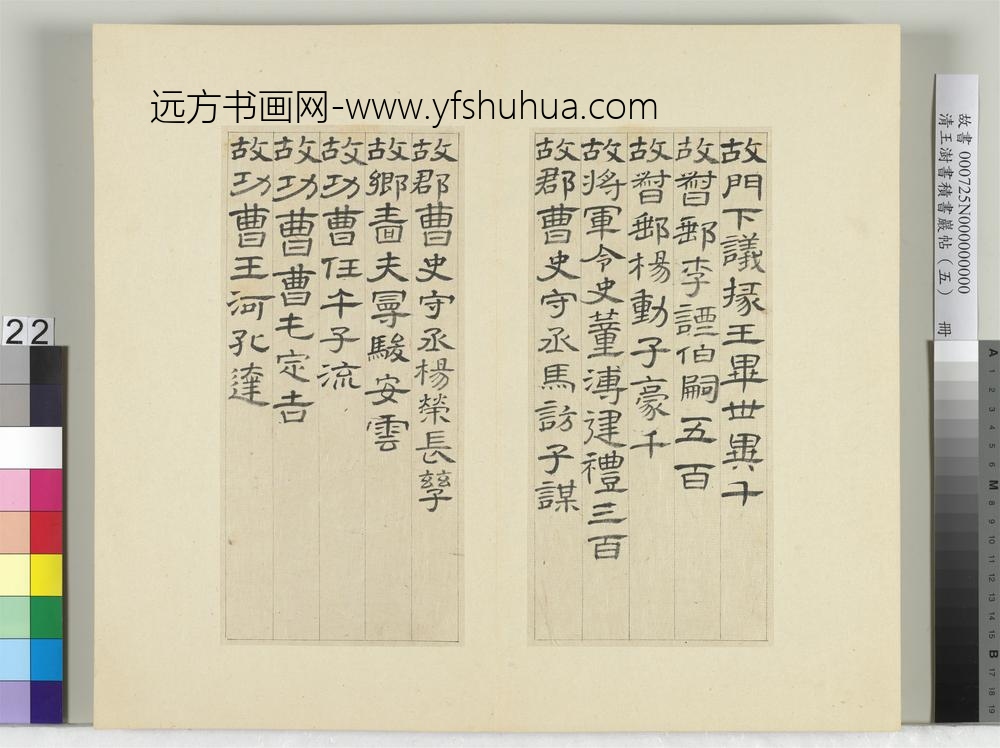 远方书画网-www.yfshuhua.com
故門下議掾王畢世異千
故督郵李諲伯嗣五百
故督郵楊動子豪千
故將軍令史董溥建禮三百
故郡曹史守丞馬訪子謀
故郡曹史守丞楊榮長孳
故鄉嗇夫曼駿安雲
故功曹任午子流
故功曹曹屯定吉
故功曹王河孔達
故書 000725N000000000
清王澍書積書巖帖(五) 冊
22
A 1 2 3 4 5 6 M 8 9 10 11 12 13 14 15 B 17 18 19